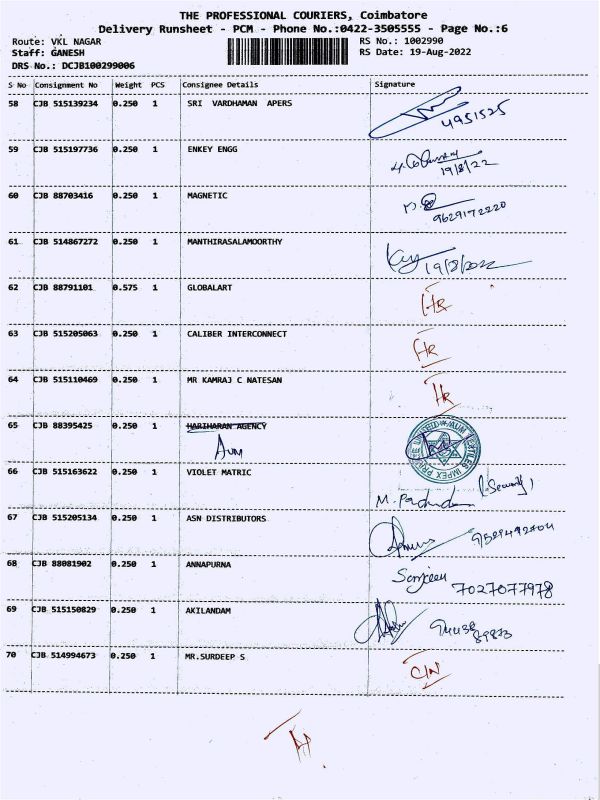 THE PROFESSIONAL COURIERS, Coimbatore
Delivery Runsheet - PCM - Phone No.:0422-3505555 - Page No.:6
Route: VKL NAGAR RS No.: 1002990
Staff: GANESH RS Date: 19-Aug-2022
DRS No.: DCJB100299006
S No Consignment No Weight PCS Consignee Details Signature
58 CJB 515139234 0.250 1 SRI VARDHAMAN APERS
4951525
59 CJB 515197736 0.250 1 ENKEY ENGG
19/8/22
60 CJB 88703416 0.250 1 MAGNETIC
9629172220
61 CJB 514867272 0.250 1 MANTHIRASALAMOORTHY
19/8/2022
62 CJB 88791101 0.575 1 GLOBALART
HR
63 CJB 515205063 0.250 1 CALIBER INTERCONNECT
HR
64 CJB 515110469 0.250 1 MR KAMRAJ C NATESAN
HR
65 CJB 88395425 0.250 1 HARIHARAN AGENCY
IMPEX PRIVATE LIMITED
66 CJB 515163622 0.250 1 VIOLET MATRIC
67 CJB 515205134 0.250 1 ASN DISTRIBUTORS
68 CJB 88081902 0.250 1 ANNAPURNA
7027077978
69 CJB 515150829 0.250 1 AKILANDAM
70 CJB 514994673 0.250 1 MR.SURDEEP S
CIN